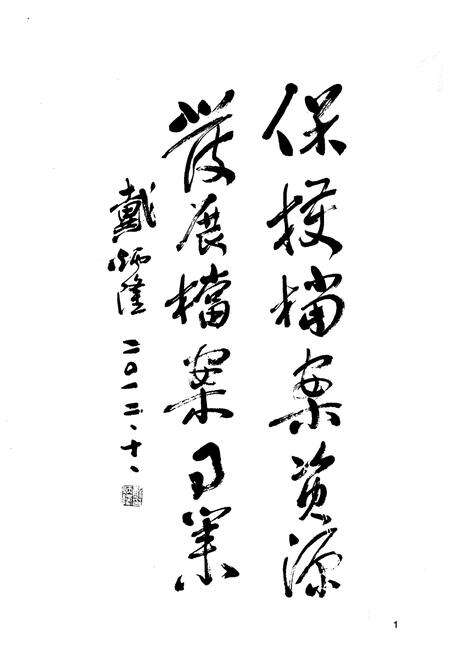 保護檔案資源
發展檔案事業
戴炳隆 二〇一二、十、
1